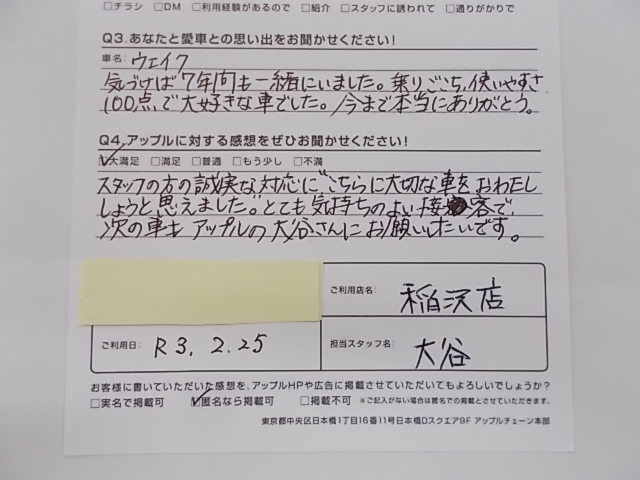 □チラシ □DM □利用経験があるので □紹介 □スタッフに誘われて □通りがかりで
Q3.あなたと愛車との思い出をお聞かせください!
車名: ウェイク
気づけば7年間も一緒にいました。乗りごこち、使いやすさ
100点で大好きな車でした。今まで本当にありがとう。
Q4.アップルに対する感想をぜひお聞かせください!
☑大満足 □満足 □普通 □もう少し □不満
スタッフの方の誠実な対応に"こちらに大切な車をおわたし
しようと思えました。"とても気持ちのよい接客で、
次の車も アップルの大谷さんにお願いしたいです。
ご利用店名: 稲沢店
ご利用日: R3.2.25
担当スタッフ名: 大谷
お客様に書いていただいた感想を、アップルHPや広告に掲載させていただいてもよろしいでしょうか?
□実名で掲載可 ☑匿名なら掲載可 □掲載不可 ※ご記入がない場合は匿名での掲載とさせていただきます。
東京都中央区日本橋1丁目16番11号日本橋Dスクエア9F アップルチェーン本部